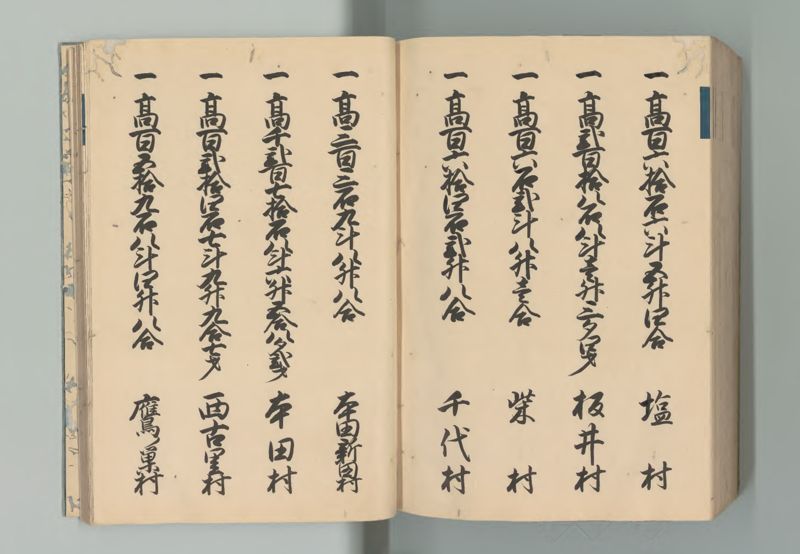 一 高百六拾石六斗五升四合 塩村
一 高弐百拾八石八斗壱升三夕四才 板井村
一 高百六石弐斗八升壱合 柴村
一 高百六拾四石弐升八合 千代村
一 高三百三石九斗八升八合 本田新田村
一 高千弐百七拾石八斗六升五合八夕弐才 本田村
一 高百弐拾四石七斗九升九合七才 西古里村
一 高百五拾九石八斗四升八合 鷹巣村